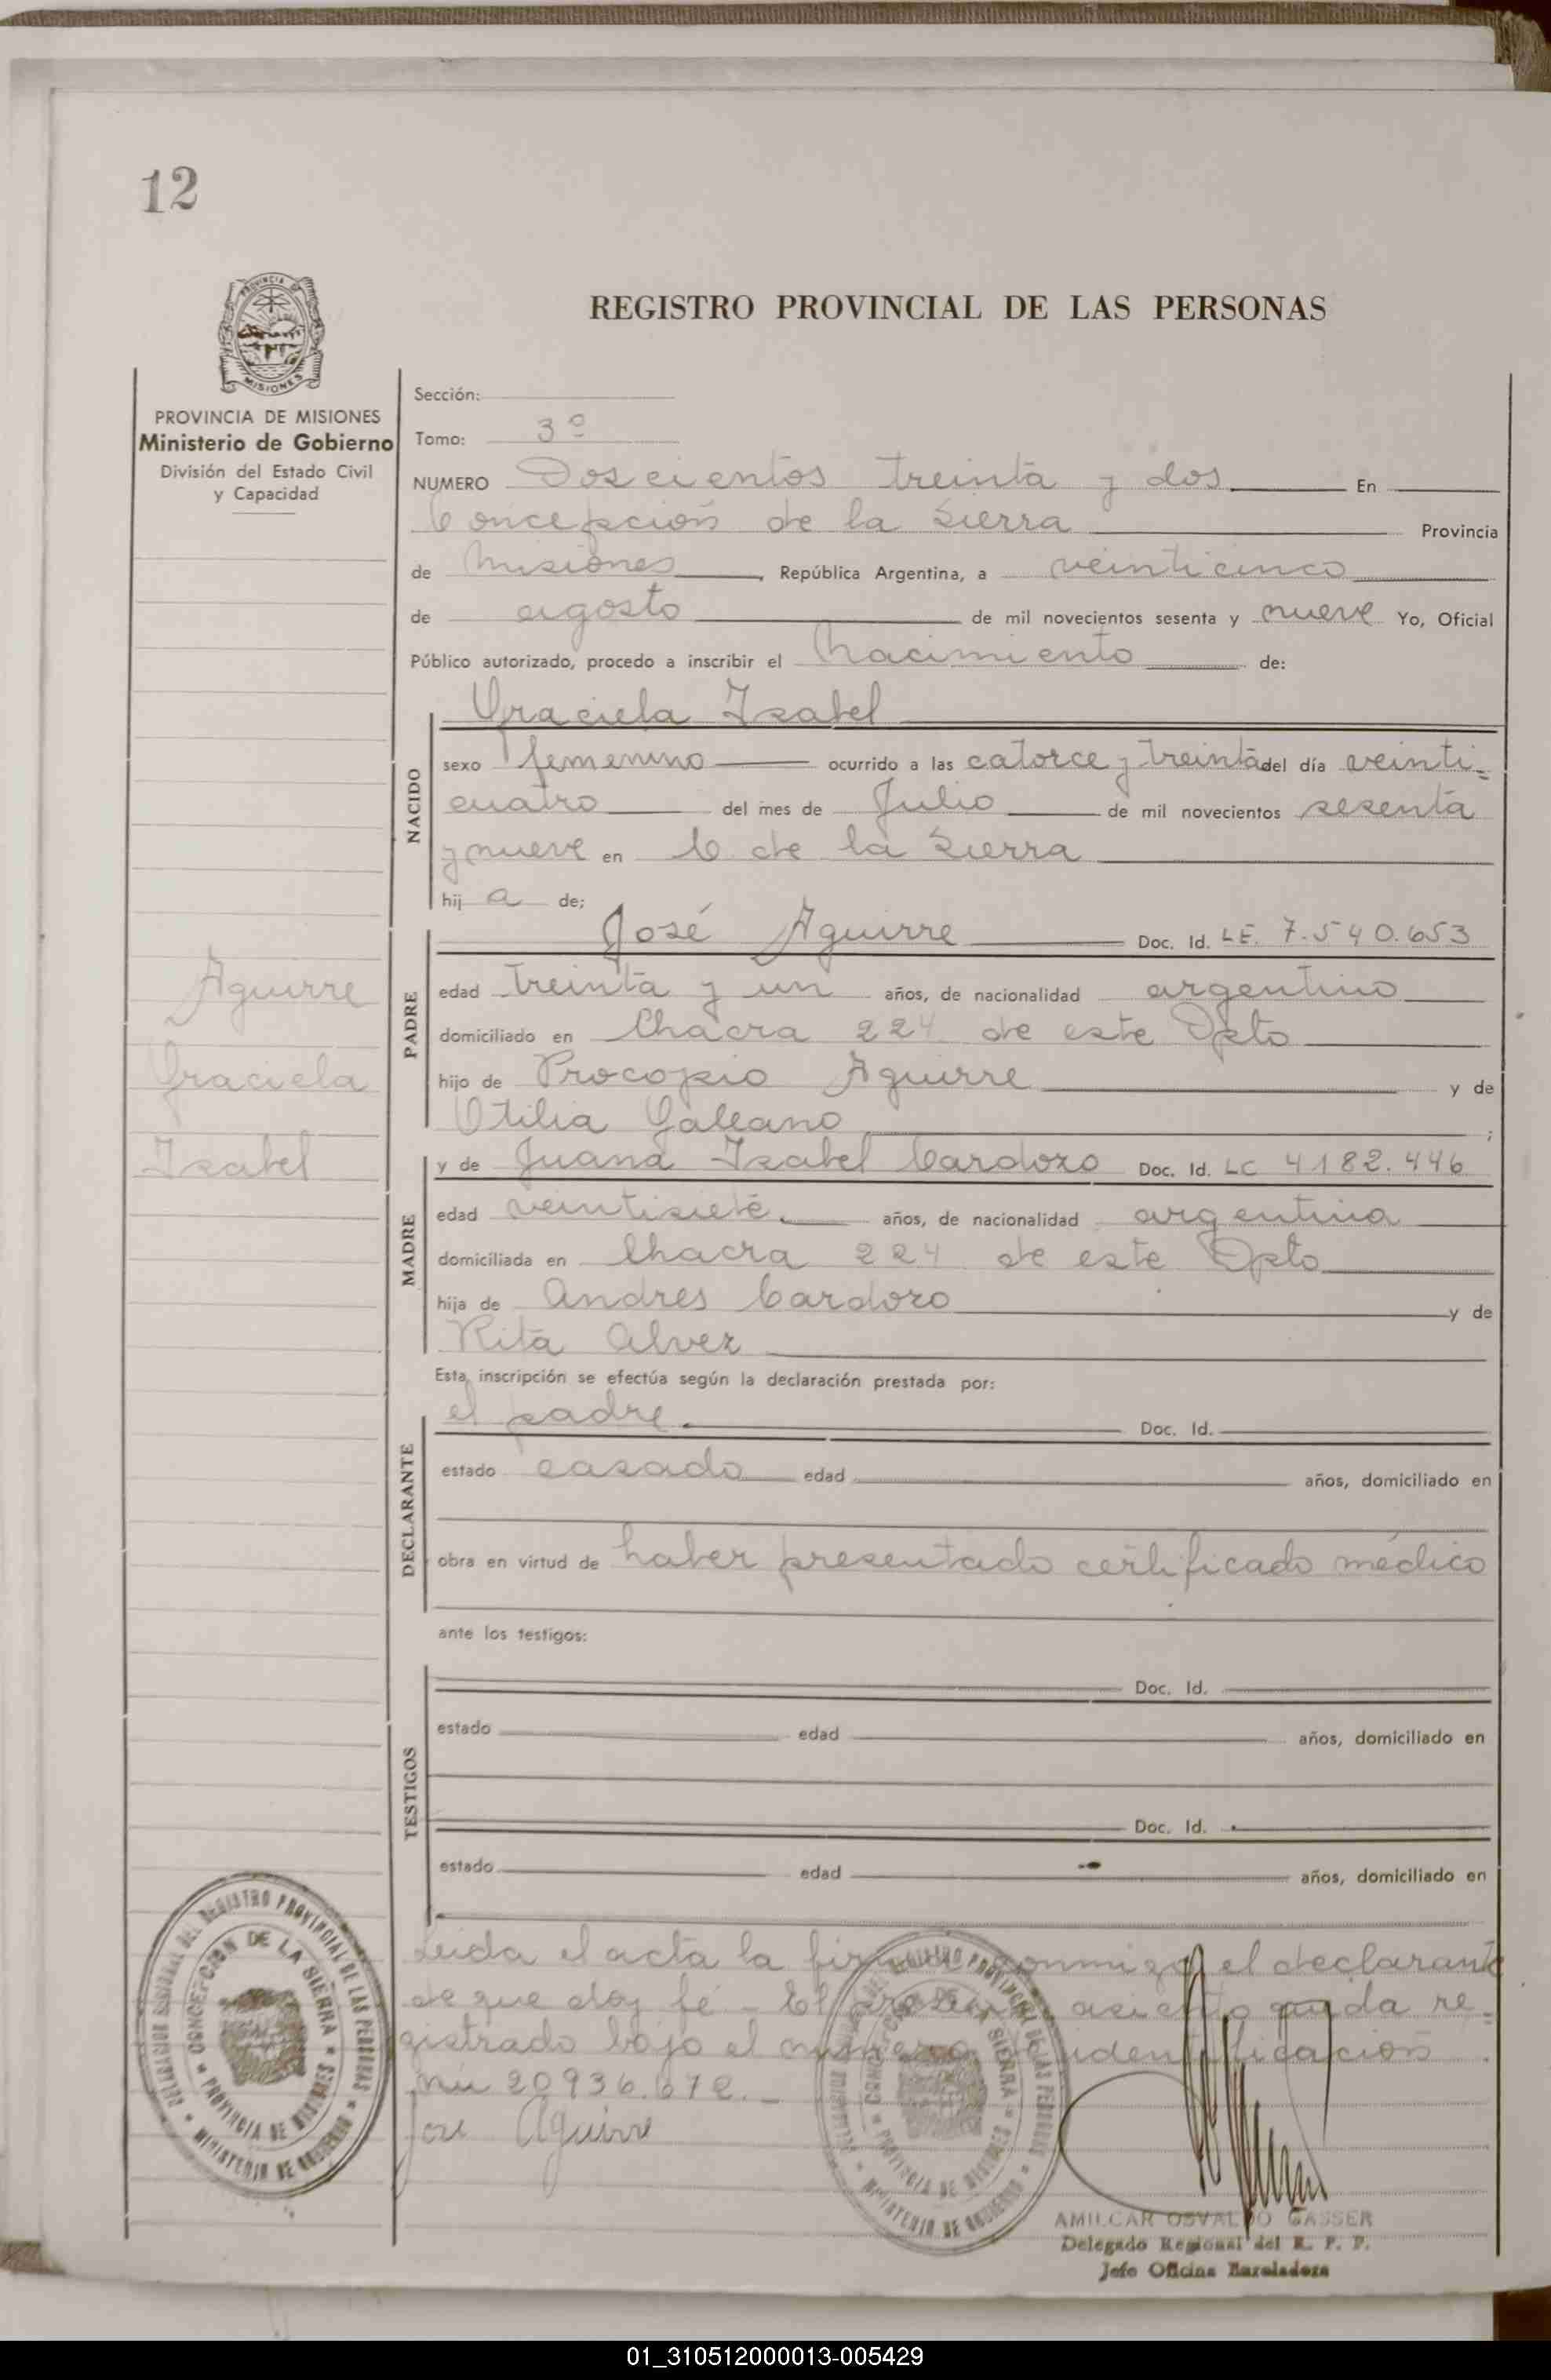 12
PROVINCIA DE MISIONES
Ministerio de Gobierno
División del Estado Civil
y Capacidad
REGISTRO PROVINCIAL DE LAS PERSONAS
Sección:
Tomo: 3º
NUMERO Doscientos treinta y dos En
Concepción de la Sierra Provincia
de Misiones, República Argentina, a veinticinco
de agosto de mil novecientos sesenta y nueve Yo, Oficial
Público autorizado, procedo a inscribir el Nacimiento de:
NACIDO
Graciela Isabel
sexo femenino ocurrido a las catorce y treinta del día veinti-
cuatro del mes de Julio de mil novecientos sesenta
y nueve en C. de la Sierra
hij a de;
Aguirre
Graciela
Isabel
PADRE
José Aguirre Doc. Id. LE. 7.540.653
edad treinta y un años, de nacionalidad argentino
domiciliado en Chacra 224 de este Dpto
hijo de Procopio Aguirre y de
Otilia Galeano ;
MADRE
y de Juana Isabel Cardozo Doc. Id. LC 4182.446
edad veintisiete. años, de nacionalidad argentina
domiciliada en Chacra 224 de este Dpto
hija de Andres Cardozo y de
Rita Alvez
Esta inscripción se efectúa según la declaración prestada por:
DECLARANTE
el padre. Doc. Id.
estado casado edad años, domiciliado en
obra en virtud de haber presentado certificado médico
ante los testigos:
TESTIGOS
Doc. Id.
estado edad años, domiciliado en
Doc. Id.
estado edad años, domiciliado en
Leida el acta la firma conmigo el declarante
de que doy fé - El presente asiento queda re-
gistrado bajo el numero de identificación
nu 20936.672.-
José Aguirre
DELEGACION REGIONAL DEL REGISTRO PROVINCIAL DE LAS PERSONAS
CONCEPCION DE LA SIERRA
PROVINCIA DE MISIONES
MINISTERIO DE GOBIERNO
AMILCAR OSVALDO GASSER
Delegado Regional del R. P. P.
Jefe Oficina
01_310512000013-005429